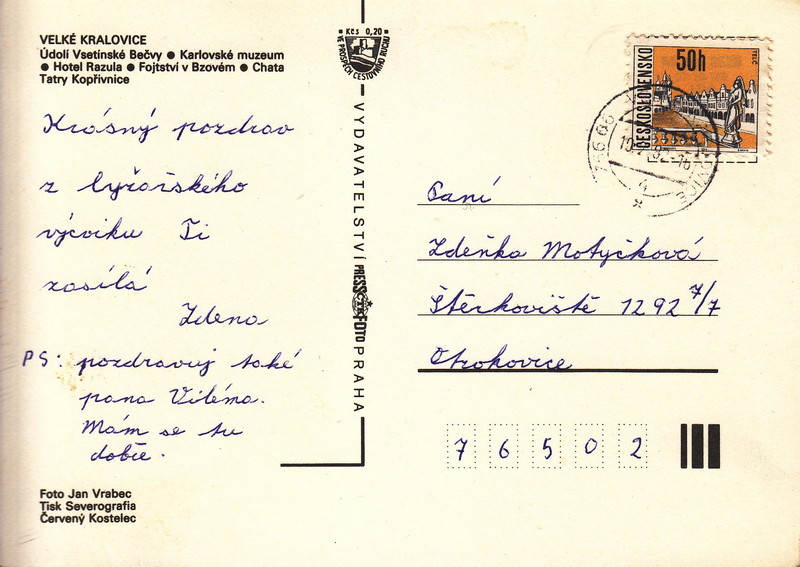 VELKÉ KRALOVICE
Údolí Vsetínské Bečvy ● Karlovské muzeum
● Hotel Razula ● Fojtství v Bzovém ● Chata
Tatry Kopřivnice
Krásný pozdrav
z lyžařského
výcviku Ti
zasílá
Zdena
PS: pozdravuj také
pana Viléma.
Mám se tu
dobře.
Foto Jan Vrabec
Tisk Severografia
Červený Kostelec
Kčs 0,20
VE PROSPĚCH CESTOVNÍHO RUCHU
VYDAVATELSTVÍ PRESSFOTO PRAHA
ČTK
50h
ČESKOSLOVENSKO
TELČ
756 06
Paní
Zdeňka Motyčková
Štěrkoviště 1292 7/7
Otrokovice
7 6 5 0 2